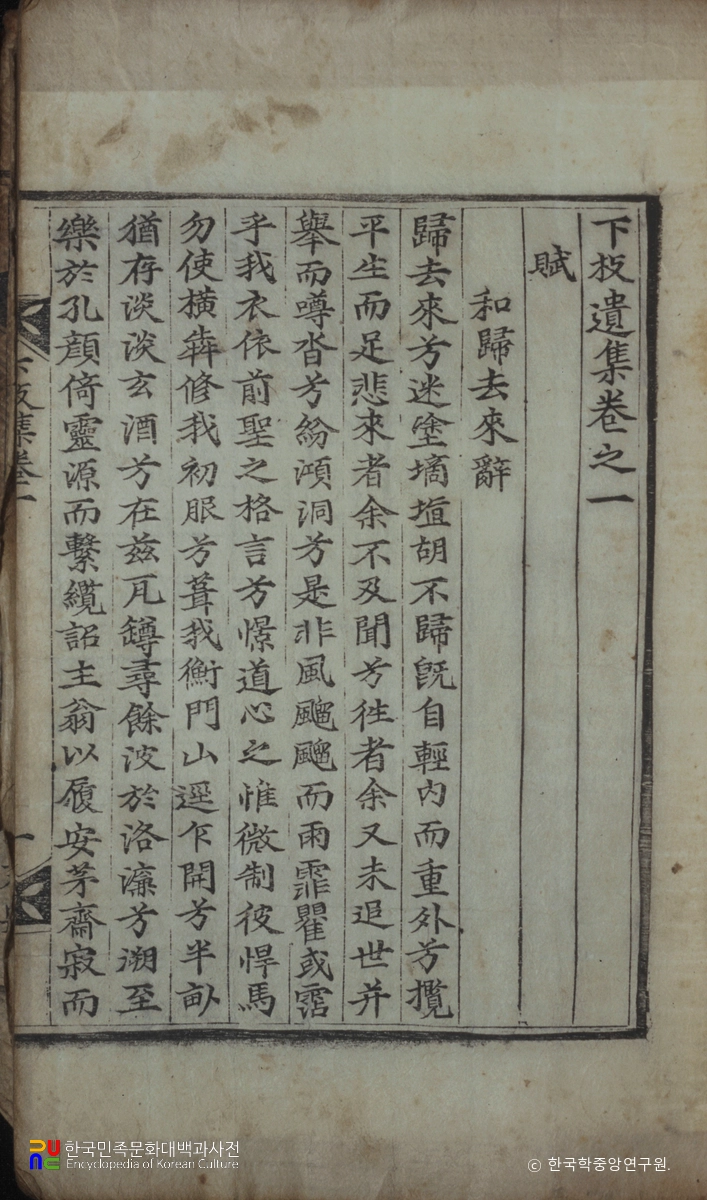 下枝遺集卷之一
賦
和歸去來辭
歸去來兮迷塗墑埴胡不歸旣自輕內而重外兮攬
平生而足悲來者余不及聞兮徃者余又未追世并
舉而噂沓兮紛澒洞兮是非風颾颾而雨霏瞿或霑
乎我衣依前聖之格言兮憬道心之惟微制彼悍馬
勿使橫犇修我初服兮葺我衡門山逕乍開兮半畝
猶存淡淡玄酒兮在玆瓦罇尋餘波於洛濂兮溯至
樂於孔顔倚靈源而繫纜詔主翁以履安茅齋寂而
한국민족문화대백과사전
Encyclopedia of Korean Culture
© 한국학중앙연구원.